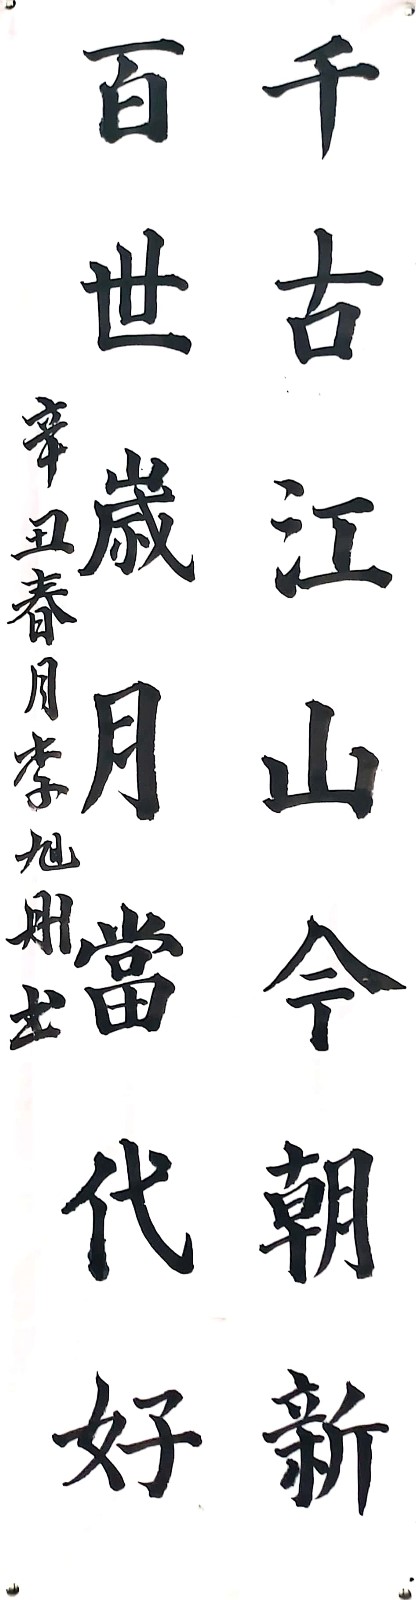 千古江山今朝新
百世歲月當代好
辛丑春月李旭刚书